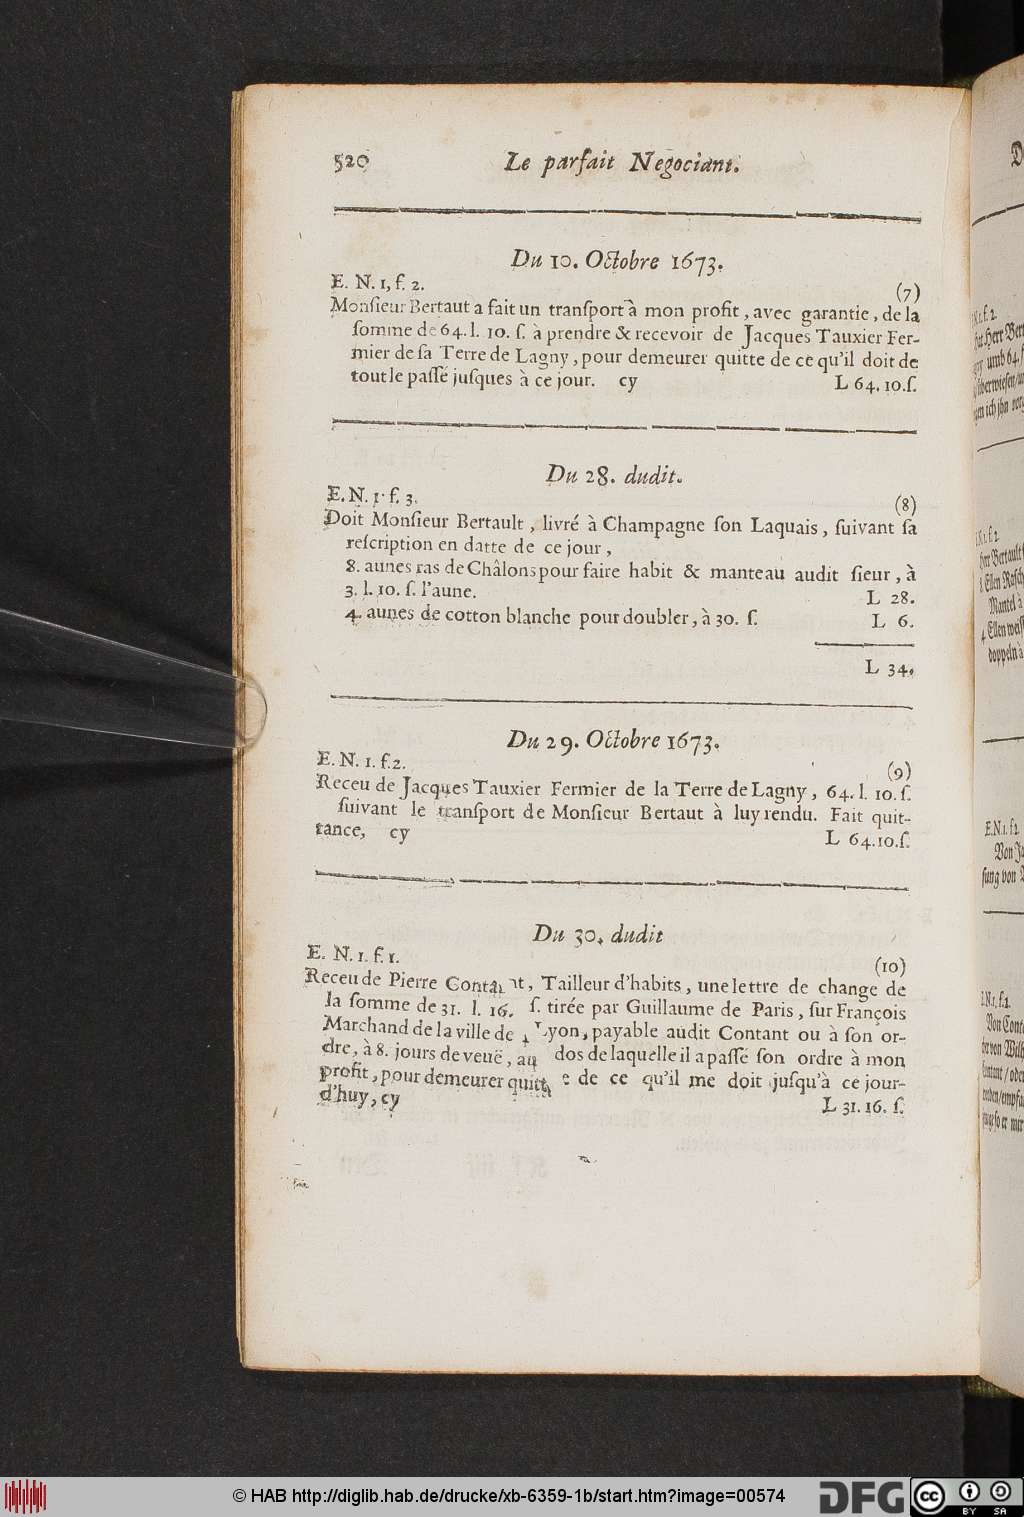 520 Le parfait Negociant.
Du 10. Octobre 1673.
E. N. 1, f. 2.
(7)
Monſieur Bertaut a fait un tranſport à mon profit, avec garantie, de la
ſomme de 64. l. 10. ſ. à prendre & recevoir de Jacques Tauxier Fer-
mier de ſa Terre de Lagny, pour demeurer quitte de ce qu'il doit de
tout le paſſé juſques à ce jour. cy L 64. 10. ſ.
Du 28. dudit.
E. N. 1. f. 3.
(8)
Doit Monſieur Bertault, livré à Champagne ſon Laquais, ſuivant ſa
reſcription en datte de ce jour,
8. aunes ras de Châlons pour faire habit & manteau audit ſieur, à
3. l. 10. ſ. l'aune. L 28.
4. aunes de cotton blanche pour doubler, à 30. ſ. L 6.
L 34.
Du 29. Octobre 1673.
E. N. 1. f. 2.
(9)
Receu de Jacques Tauxier Fermier de la Terre de Lagny, 64. l. 10. ſ.
ſuivant le tranſport de Monſieur Bertaut à luy rendu. Fait quit-
tance, cy L 64. 10. ſ.
Du 30. dudit
E. N. 1. f. 1.
(10)
Receu de Pierre Contant, Tailleur d'habits, une lettre de change de
la ſomme de 31. l. 16. ſ. tirée par Guillaume de Paris, ſur François
Marchand de la ville de Lyon, payable audit Contant ou à ſon or-
dre, à 8. jours de veuë, au dos de laquelle il a paſſé ſon ordre à mon
profit, pour demeurer quitte de ce qu'il me doit juſqu'à ce jour-
d'huy, cy L 31. 16. ſ.
© HAB http://diglib.hab.de/drucke/xb-6359-1b/start.htm?image=00574
DFG
cc
BY SA